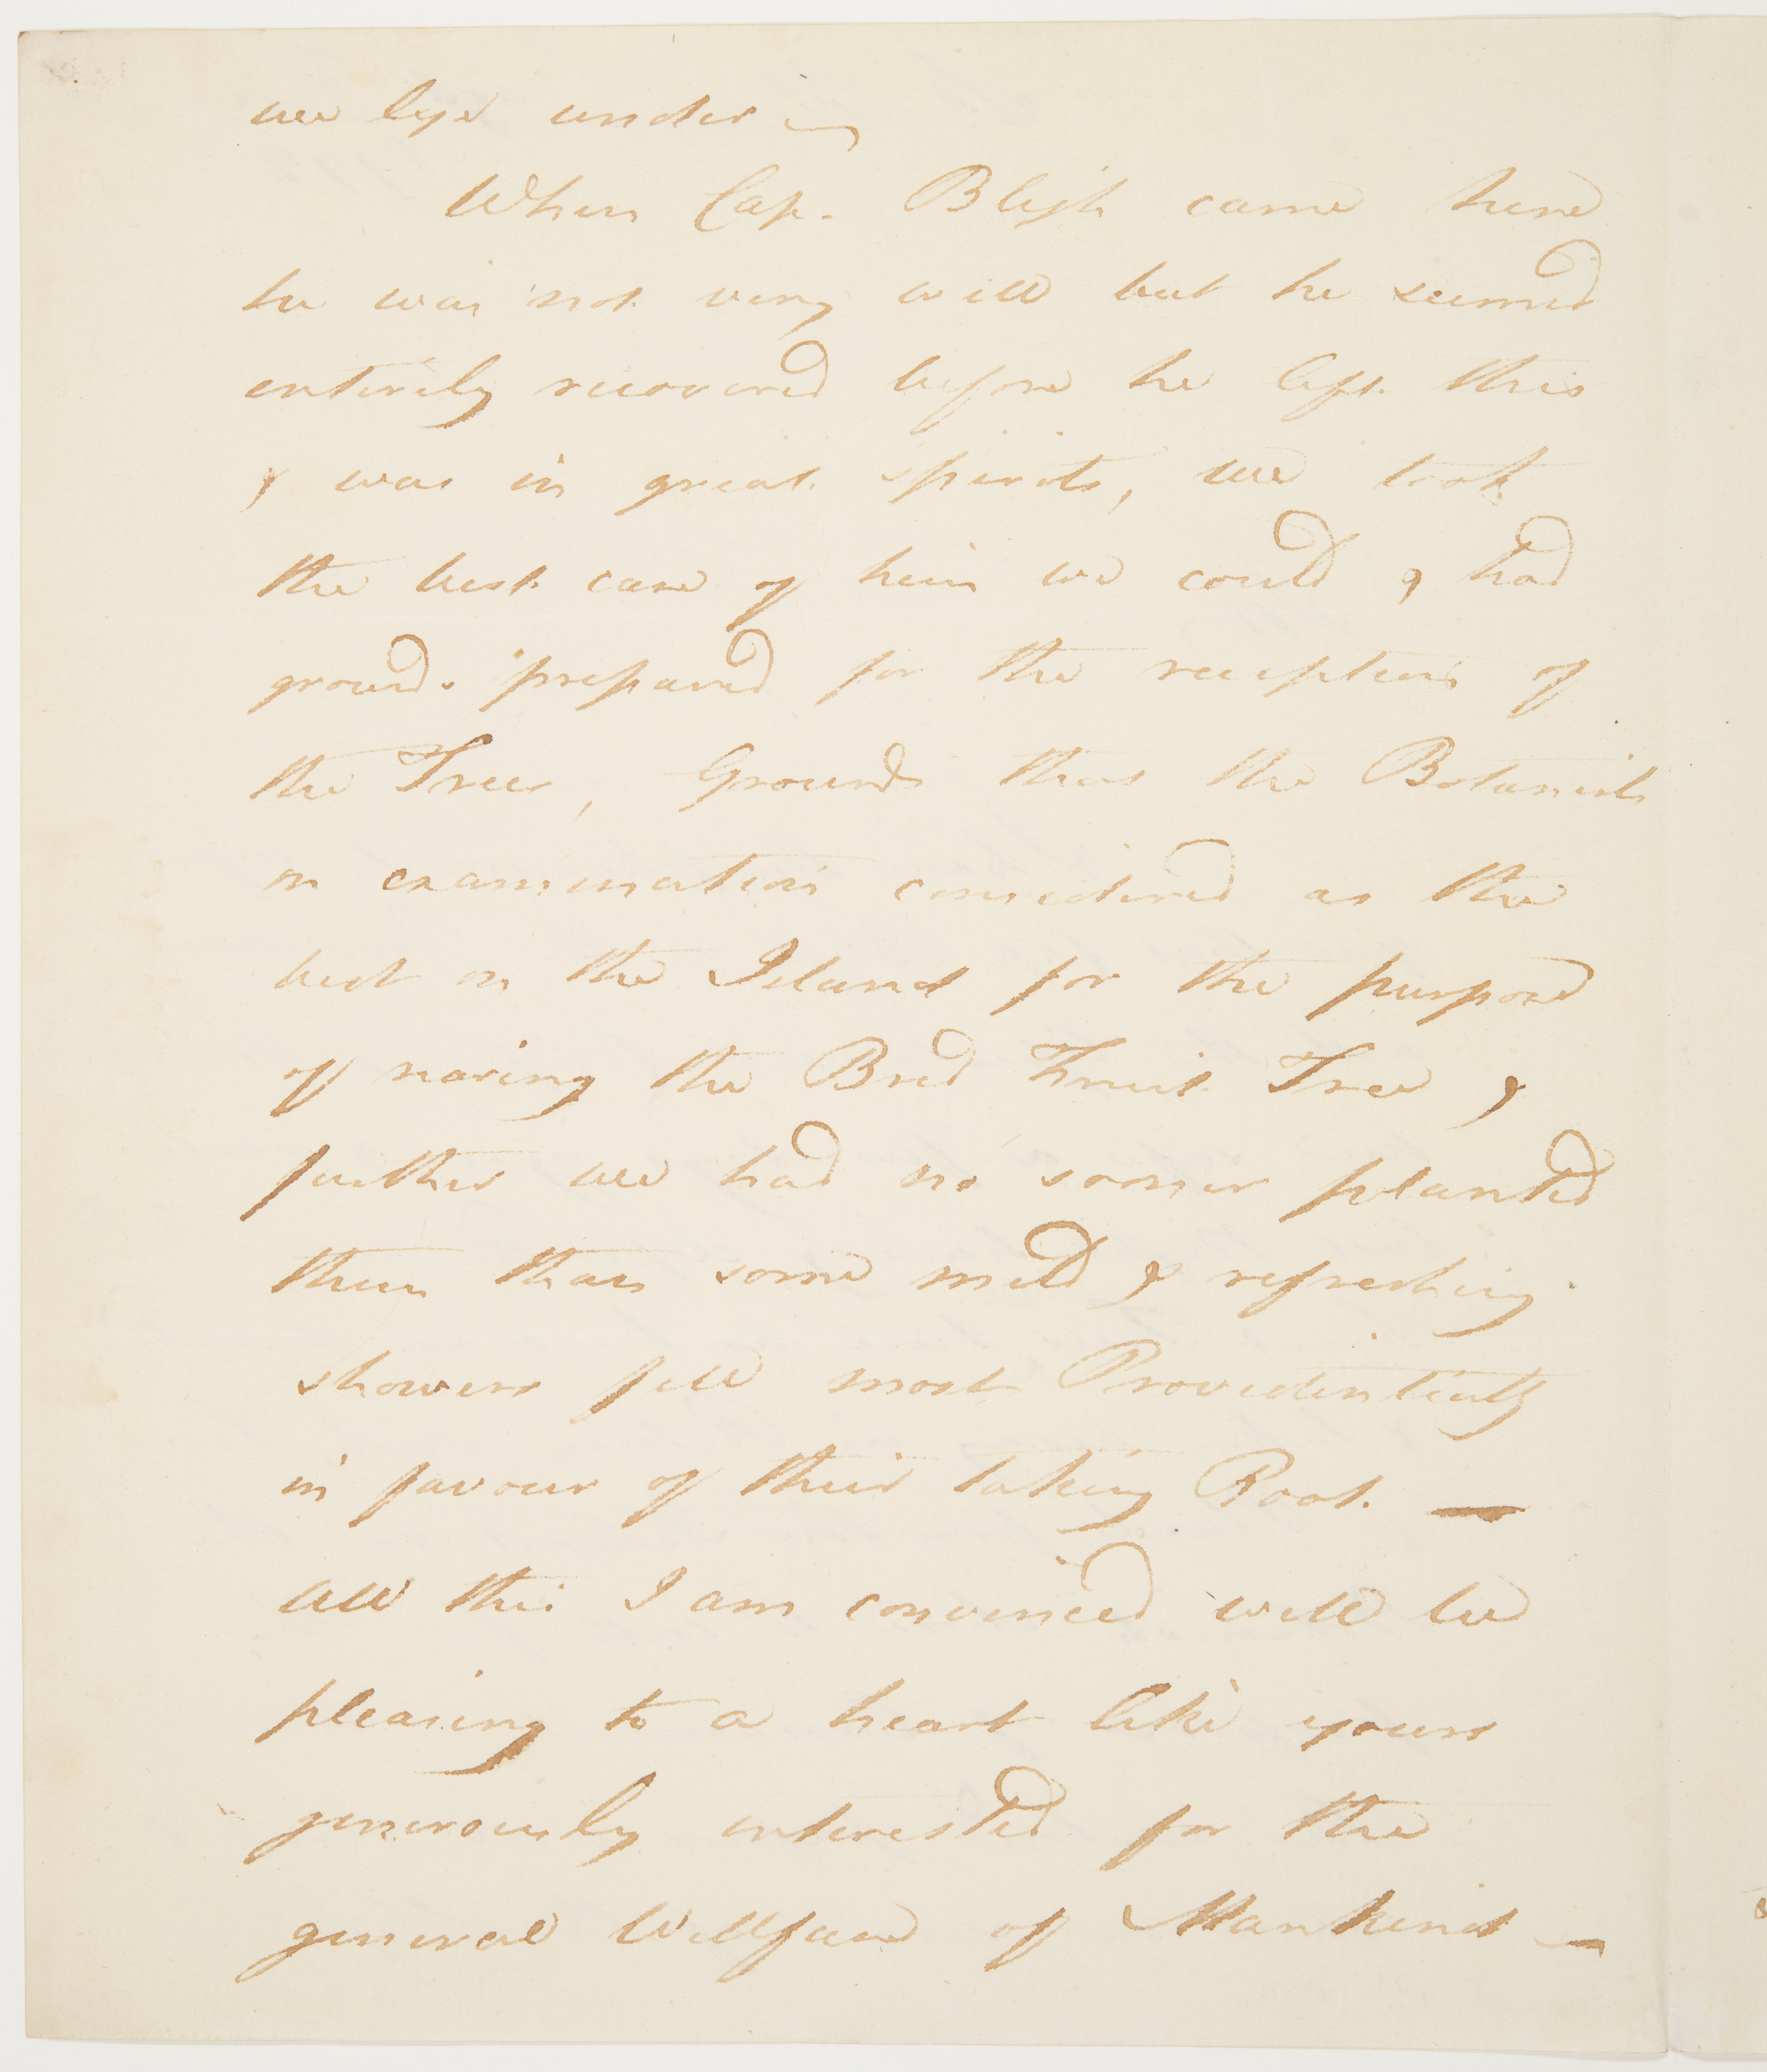 we lye under —
When Cap. Bligh came here
he was not very well but he seemed
entirely recovered before he left this
& was in great spirits, we took
the best care of him we could & had
ground prepared for the reception of
the Trees, Grounds that the Botanists
on examination considered as the
best on the Island for the purpose
of rearing the Bred Fruit Tree &
further we had no sooner planted
them than some mild & refreshing
showers fell most Providentially
in favour of their taking Root. —
All this I am convinced will be
pleasing to a heart like yours
generously interested for the
general Wellfare of Mankind —